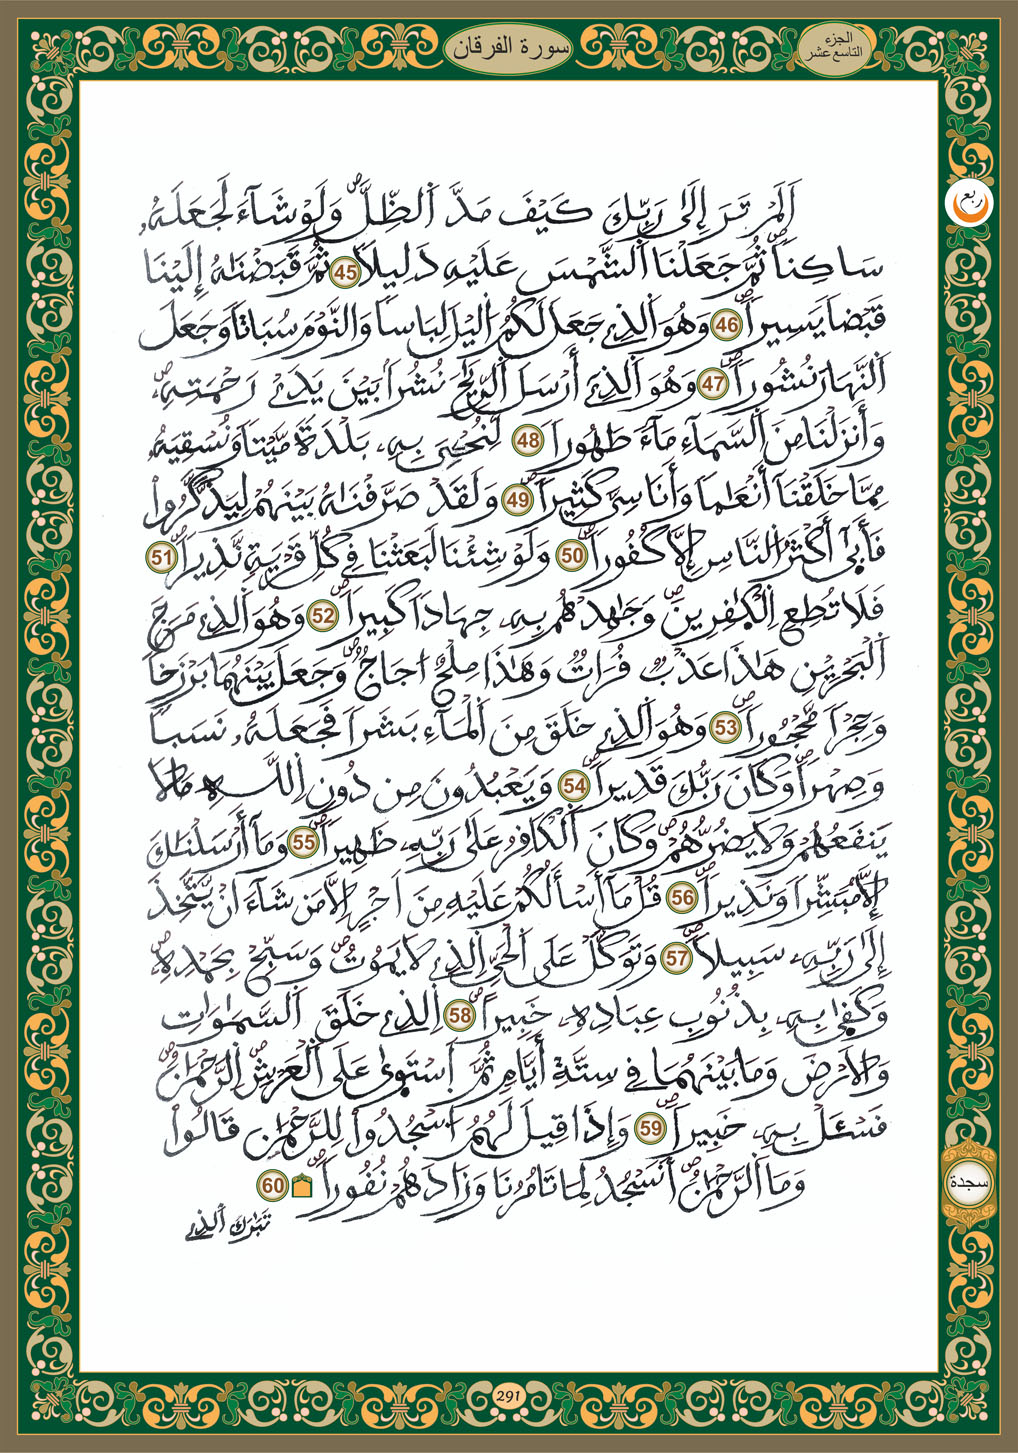 سورة الفرقان
الجزء
التاسع عشر
ربع
أَلَمْ تَرَ إِلَىٰ رَبِّكَ كَيْفَ مَدَّ ٱلظِّلَّ ۖ وَلَوْ شَآءَ لَجَعَلَهُۥ
سَاكِناٗ ۖ ثُمَّ جَعَلْنَا ٱلشَّمْسَ عَلَيْهِ دَلِيلاٗ 45 ثُمَّ قَبَضْنَٰهُ إِلَيْنَا
قَبْضاٗ يَسِيراٗ ۖ 46 وَهُوَ ٱلذِے جَعَلَ لَكُمُ اُ۬ليْلَ لِبَاساٗ وَالنَّوْمَ سُبَاتاٗ وَجَعَلَ
ٱلنَّهَارَ نُشُوراٗ ۖ 47 وَهُوَ ٱلذِےٓ أَرْسَلَ ٱلرِّيَٰحَ نُشُراَۢ بَيْنَ يَدَےْ رَحْمَتِهِۦ ۖ
وَأَنزَلْنَا مِنَ ٱلسَّمَآءِ مَآءٗ طَهُوراٗ 48 لِّنُحْـِۧيَ بِهِۦ بَلْدَةٗ مَّيْتاٗ وَنُسْقِيَهُۥ
مِمَّا خَلَقْنَآ أَنْعَٰماٗ وَأَنَاسِيَّ كَثِيراٗ ۖ 49 وَلَقَدْ صَرَّفْنَٰهُ بَيْنَهُمْ لِيَذَّكَّرُواْ
فَأَبَىٰٓ أَكْثَرُ ٱلنَّاسِ إِلَّا كُفُوراٗ ۖ 50 وَلَوْ شِئْنَا لَبَعَثْنَا فِے كُلِّ قَرْيَةٖ نَّذِيراٗ ۖ 51
فَلَا تُطِعِ اِ۬لْكَٰفِرِينَ ۖ وَجَٰهِدْهُم بِهِۦ جِهَاداٗ كَبِيراٗ ۖ 52 وَهُوَ ٱلذِے مَرَجَ
ٱلْبَحْرَيْنِ هَٰذَا عَذْبٞ فُرَاتٞ وَهَٰذَا مِلْحٌ اُجَاجٞ ۖ وَجَعَلَ بَيْنَهُمَا بَرْزَخاٗ
وَحِجْراٗ مَّحْجُوراٗ ۖ 53 وَهُوَ ٱلذِے خَلَقَ مِنَ ٱلْمَآءِ بَشَراٗ فَجَعَلَهُۥ نَسَباٗ
وَصِهْراٗ ۖ وَكَانَ رَبُّكَ قَدِيراٗ ۖ 54 وَيَعْبُدُونَ مِن دُونِ اِ۬للَّهِ مَا لَا
يَنفَعُهُمْ وَلَا يَضُرُّهُمْ ۖ وَكَانَ ٱلْكَافِرُ عَلَىٰ رَبِّهِۦ ظَهِيراٗ ۖ 55 وَمَآ أَرْسَلْنَٰكَ
إِلَّا مُبَشِّراٗ وَنَذِيراٗ ۖ 56 قُلْ مَآ أَسْـَٔلُكُمْ عَلَيْهِ مِنَ اَجْرٍ اِلَّا مَن شَآءَ انْ يَّتَّخِذَ
إِلَىٰ رَبِّهِۦ سَبِيلاٗ ۖ 57 وَتَوَكَّلْ عَلَى ٱلْحَيِّ اِ۬لذِے لَا يَمُوتُ ۖ وَسَبِّحْ بِحَمْدِهِۦ ۖ
وَكَفَىٰ بِهِۦ بِذُنُوبِ عِبَادِهِۦ خَبِيراٗ ۖ 58 اِ۬لذِے خَلَقَ ٱلسَّمَٰوَٰتِ
وَالَارْضَ وَمَا بَيْنَهُمَا فِے سِتَّةِ أَيَّامٖ ثُمَّ ٱسْتَوَىٰ عَلَى ٱلْعَرْشِ ۖ اِ۬لرَّحْمَٰنُ ۖ
فَسْـَٔلْ بِهِۦ خَبِيراٗ ۖ 59 وَإِذَا قِيلَ لَهُمُ ٱسْجُدُواْ لِلرَّحْمَٰنِ قَالُواْ
وَمَا ٱلرَّحْمَٰنُ ۖ أَنَسْجُدُ لِمَا تَامُرُنَا وَزَادَهُمْ نُفُوراٗ ۖ 60
سجدة
تَبَٰرَكَ ٱلذِے
291